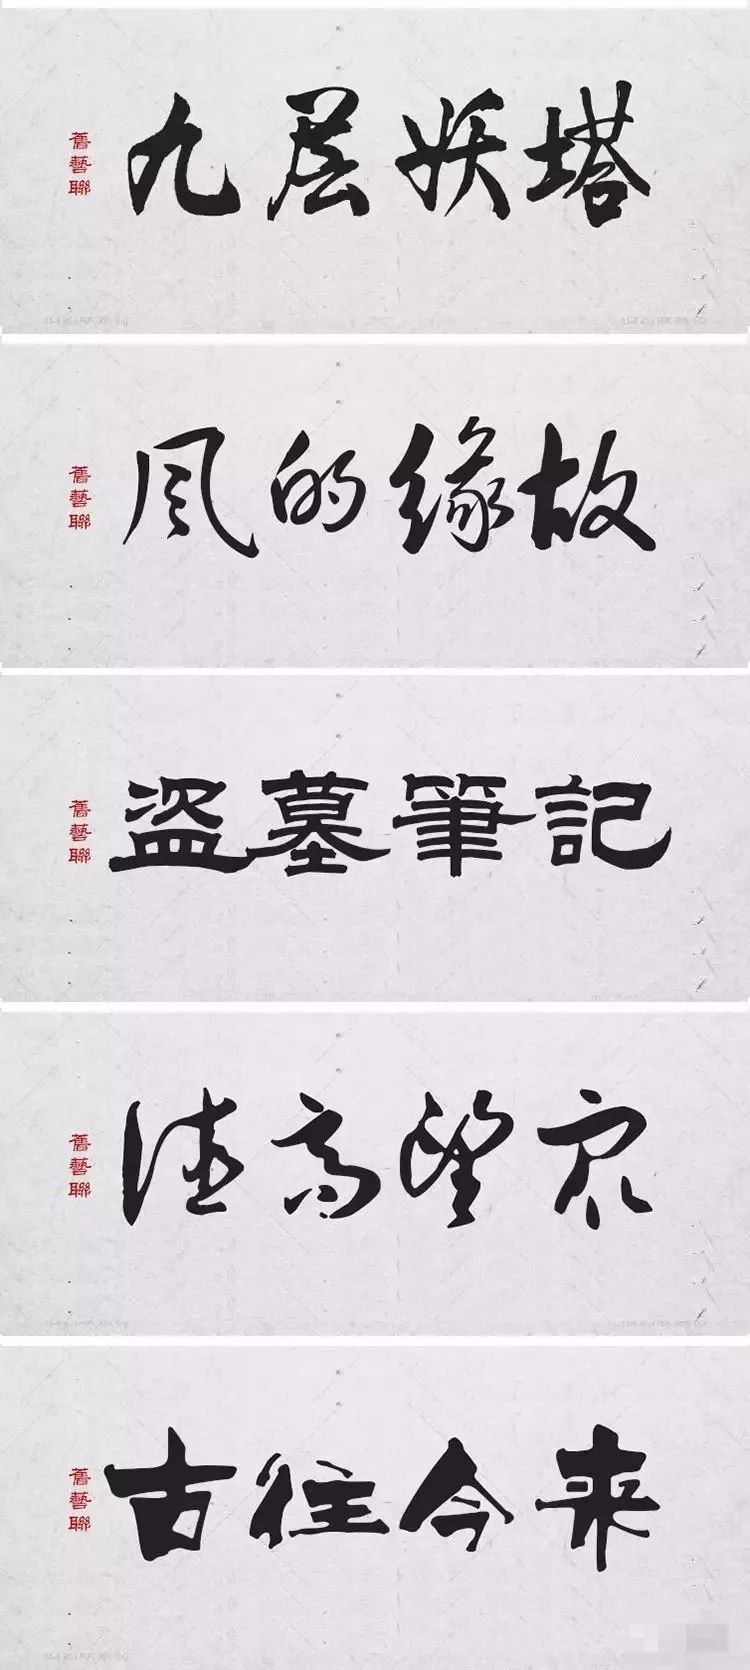 舊藝聯
九层妖塔
舊藝聯
风的缘故
舊藝聯
盜墓筆記
舊藝聯
德高望众
舊藝聯
古往今来